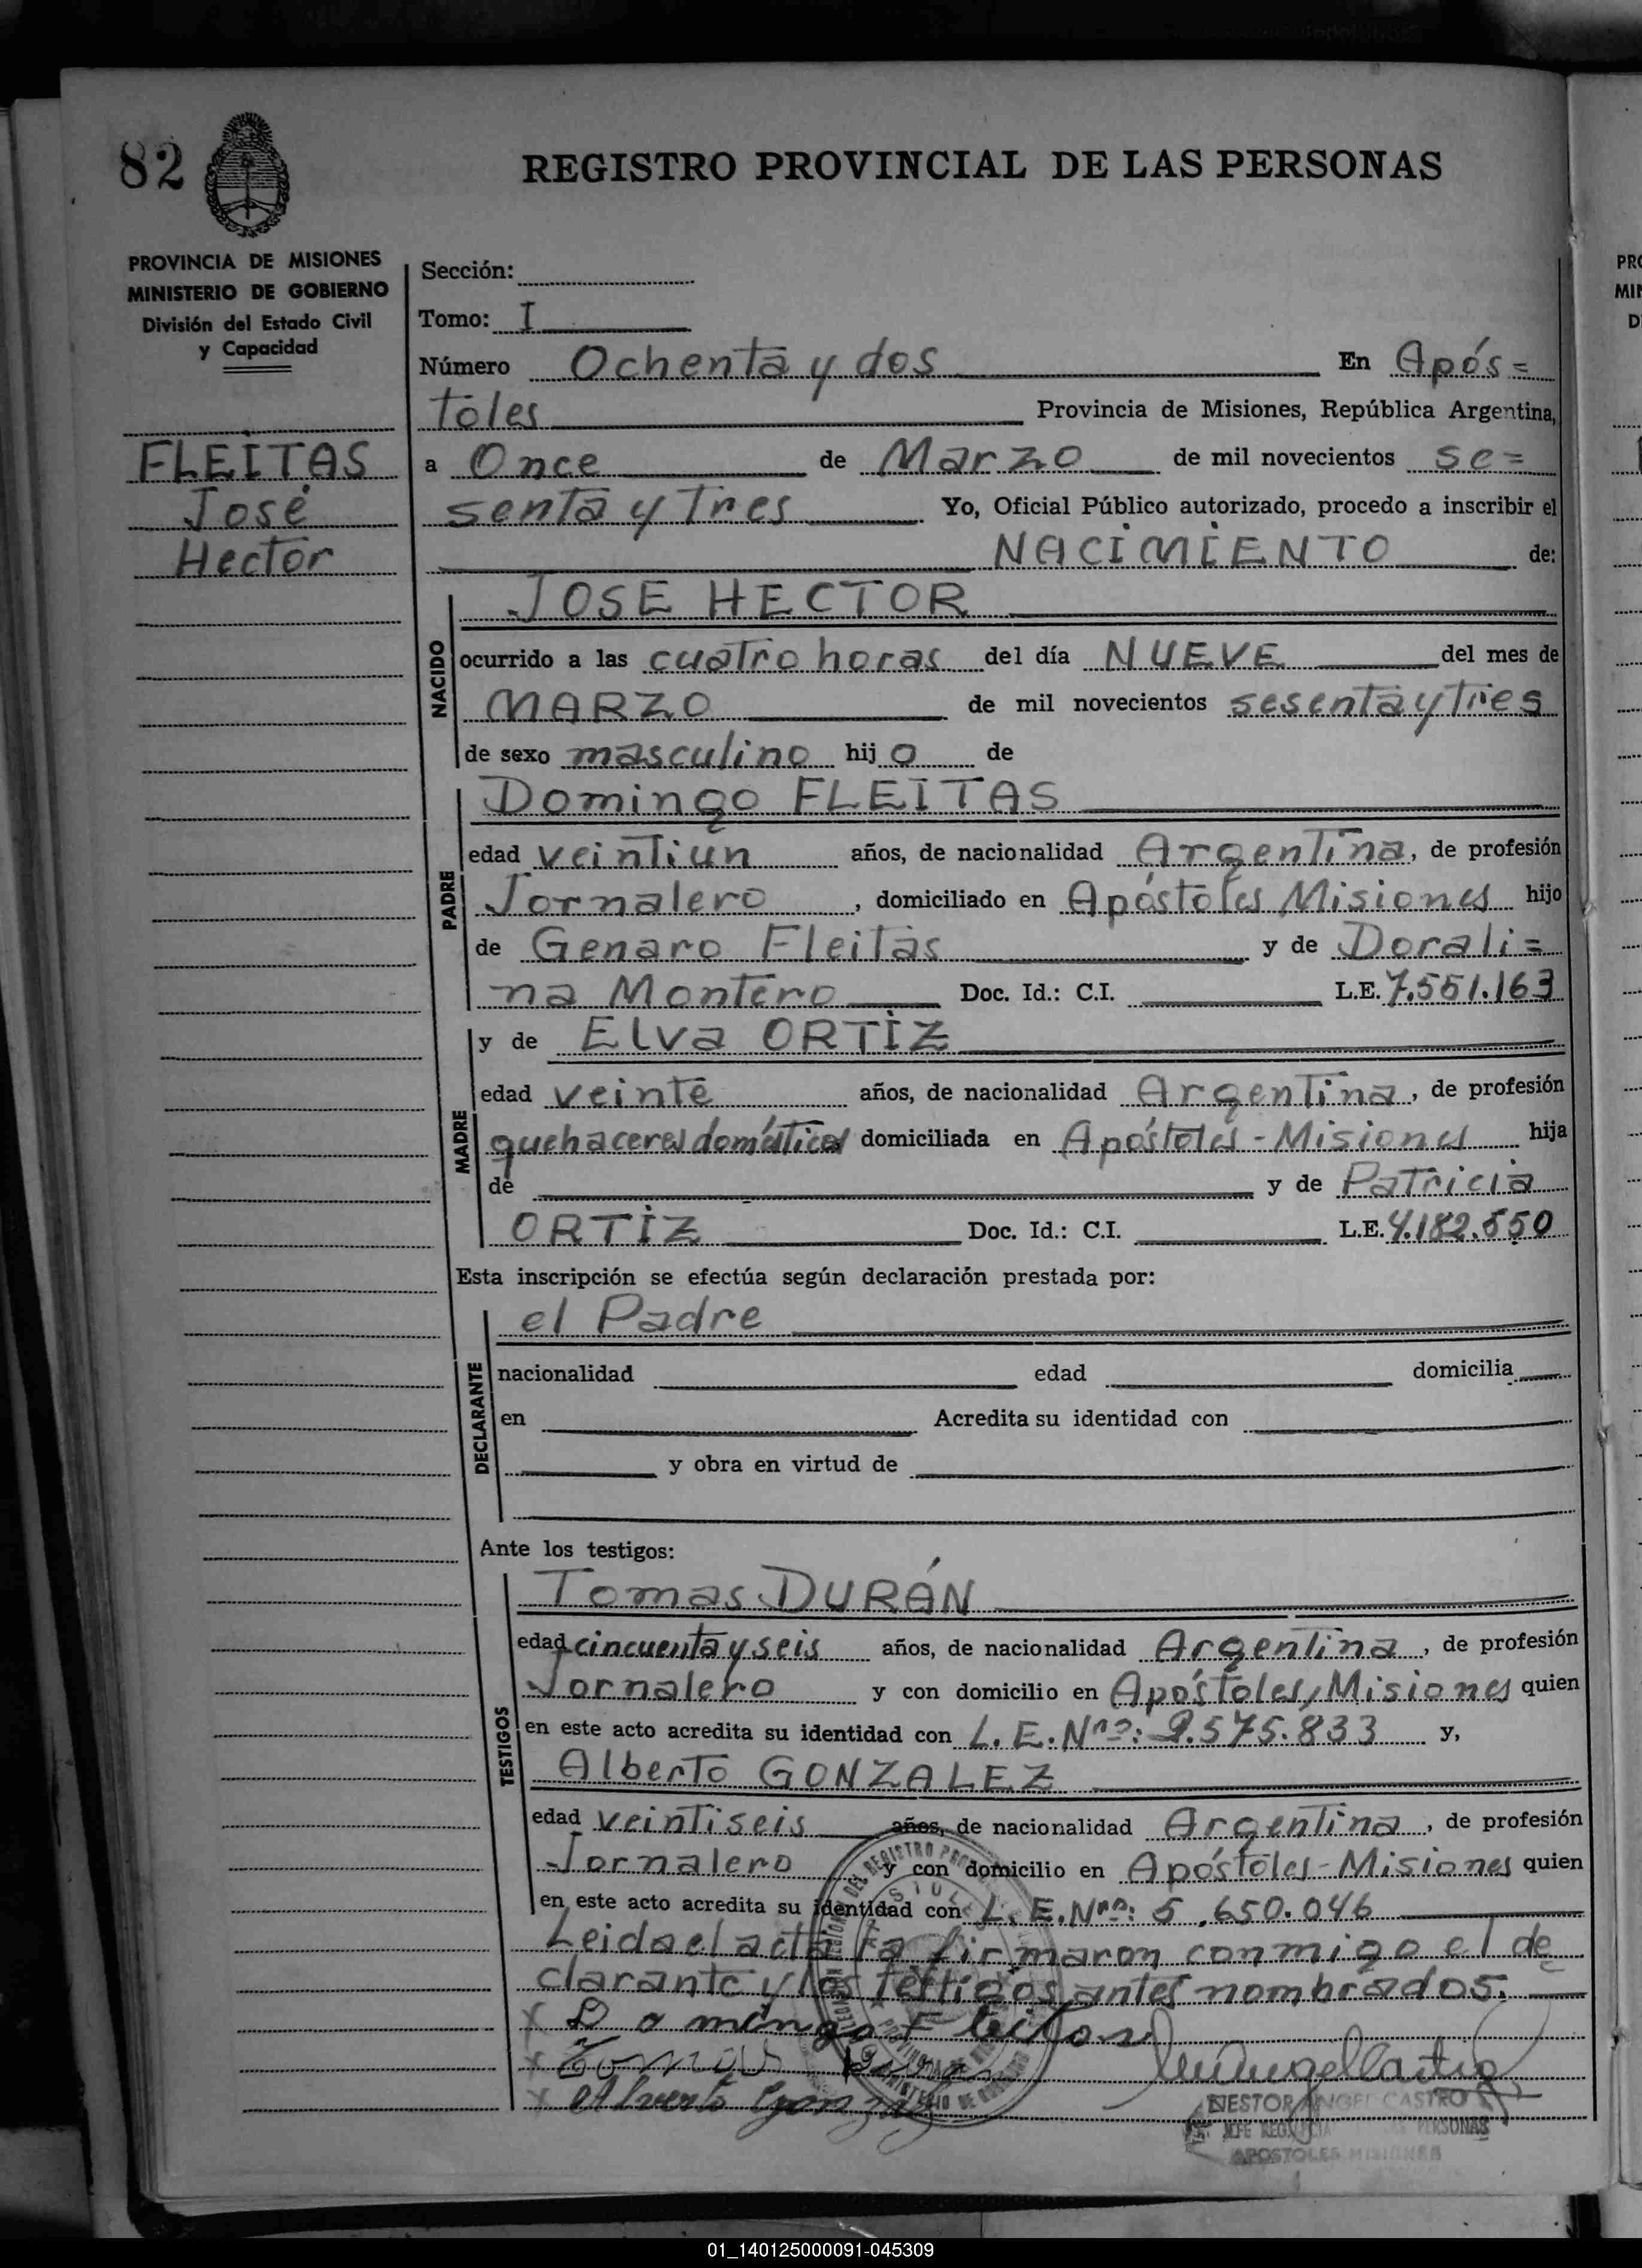 82
REGISTRO PROVINCIAL DE LAS PERSONAS
PROVINCIA DE MISIONES
MINISTERIO DE GOBIERNO
División del Estado Civil
y Capacidad
FLEITAS
José
Hector
Sección:
Tomo: I
Número Ochenta y dos En Após=
toles Provincia de Misiones, República Argentina,
a Once de Marzo de mil novecientos se=
senta y Tres Yo, Oficial Público autorizado, procedo a inscribir el
NACIMIENTO de:
NACIDO
JOSE HECTOR
ocurrido a las cuatro horas del día NUEVE del mes de
MARZO de mil novecientos sesenta y Tres
de sexo masculino hijo de
PADRE
Domingo FLEITAS
edad veintiun años, de nacionalidad Argentina, de profesión
Jornalero, domiciliado en Apóstoles Misiones hijo
de Genaro Fleitas y de Dorali=
na Montero Doc. Id.: C.I. L.E. 7.551.163
MADRE
y de Elva ORTIZ
edad veinte años, de nacionalidad Argentina, de profesión
quehaceres domésticos domiciliada en Apóstoles - Misiones hija
de y de Patricia
ORTIZ Doc. Id.: C.I. L.E. 4.182.550
Esta inscripción se efectúa según declaración prestada por:
DECLARANTE
el Padre
nacionalidad edad domicilia
en Acredita su identidad con
y obra en virtud de
Ante los testigos:
TESTIGOS
Tomas DURÁN
edad cincuenta y seis años, de nacionalidad Argentina, de profesión
Jornalero y con domicilio en Apóstoles, Misiones quien
en este acto acredita su identidad con L. E. Nro: 2.575.833 y,
Alberto GONZALEZ
edad veintiseis años, de nacionalidad Argentina, de profesión
Jornalero y con domicilio en Apóstoles - Misiones quien
en este acto acredita su identidad con L. E. Nro: 5.650.046
Leida el acta la firmaron conmigo el de
clarante y los testigos antes nombrados.
x Domingo Fleitas
x Tomas Duran
x Alverto Gonzalez
NESTOR ANGEL CASTRO
JEFE PERSONAS
APOSTOLES MISIONES
PRO
MIN
D
01_140125000091-045309